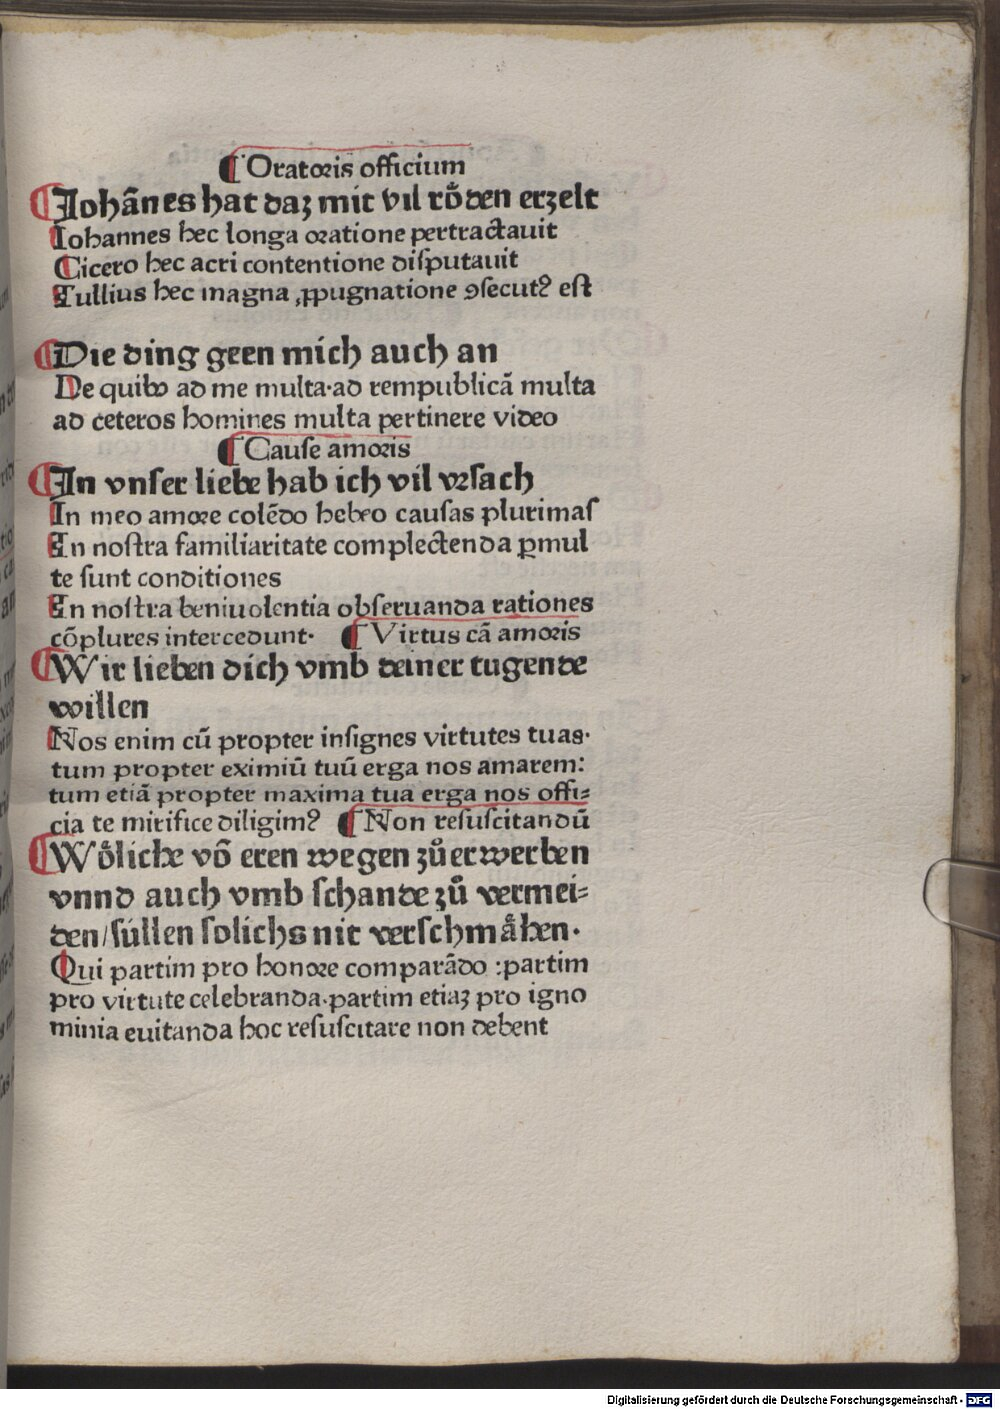 ¶ Oratoris officium
¶ Johãnes hat daʒ mit vil rͦeden erzelt
Iohannes hec longa oratione pertractauit
Cicero hec acri contentione disputauit
Tullius hec magna ꝓpugnatione ꝯsecutꝰ est
¶ Die ding geen mich auch an
De quibꝰ ad me multa·ad rempublicã multa
ad ceteros homines multa pertinere video
¶ Cause amoris
¶ In vnser liebe hab ich vil vrsach
In meo amore colẽdo hebeo causas plurimas
In nostra familiaritate complectenda ꝑmul
te sunt conditiones
In nostra beniuolentia obseruanda rationes
cõplures intercedunt· ¶ Virtus cã amoris
¶ Wir lieben dich vmb deiner tugende
willen
Nos enim cũ propter insignes virtutes tuas·
tum propter eximiũ tuũ erga nos amarem:
tum etiã propter maxima tua erga nos offi⸗
cia te mirifice diligimꝰ ¶ Non resuscitandũ
¶ Wöliche võ eren wegen zů erwerben
vnnd auch vmb schande zů vermei⸗
den/süllen solichs nit verschmåhen·
Qui partim pro honore comparãdo :partim
pro virtute celebranda·partim etiaʒ pro igno
minia euitanda hoc resuscitare non debent
Digitalisierung gefördert durch die Deutsche Forschungsgemeinschaft - DFG